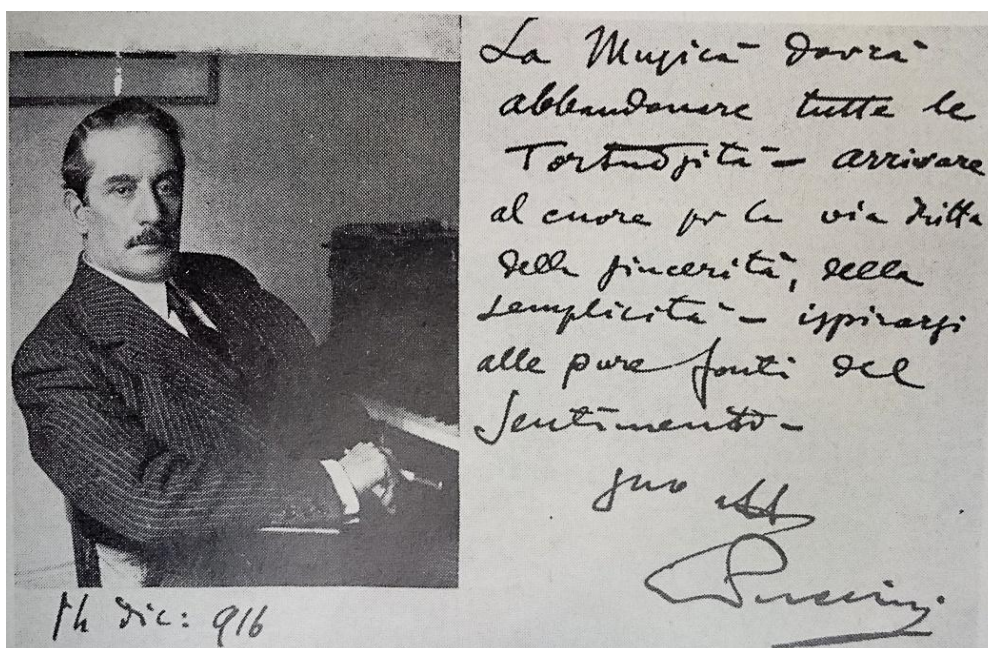 La Musica dovrà
abbandonare tutte le
Tortuosità - arrivare
al cuore pr la via dritta
della sincerità, della
semplicità - ispirarsi
alle pure fonti del
Sentimento -
suo aff
Puccini
dic: 916